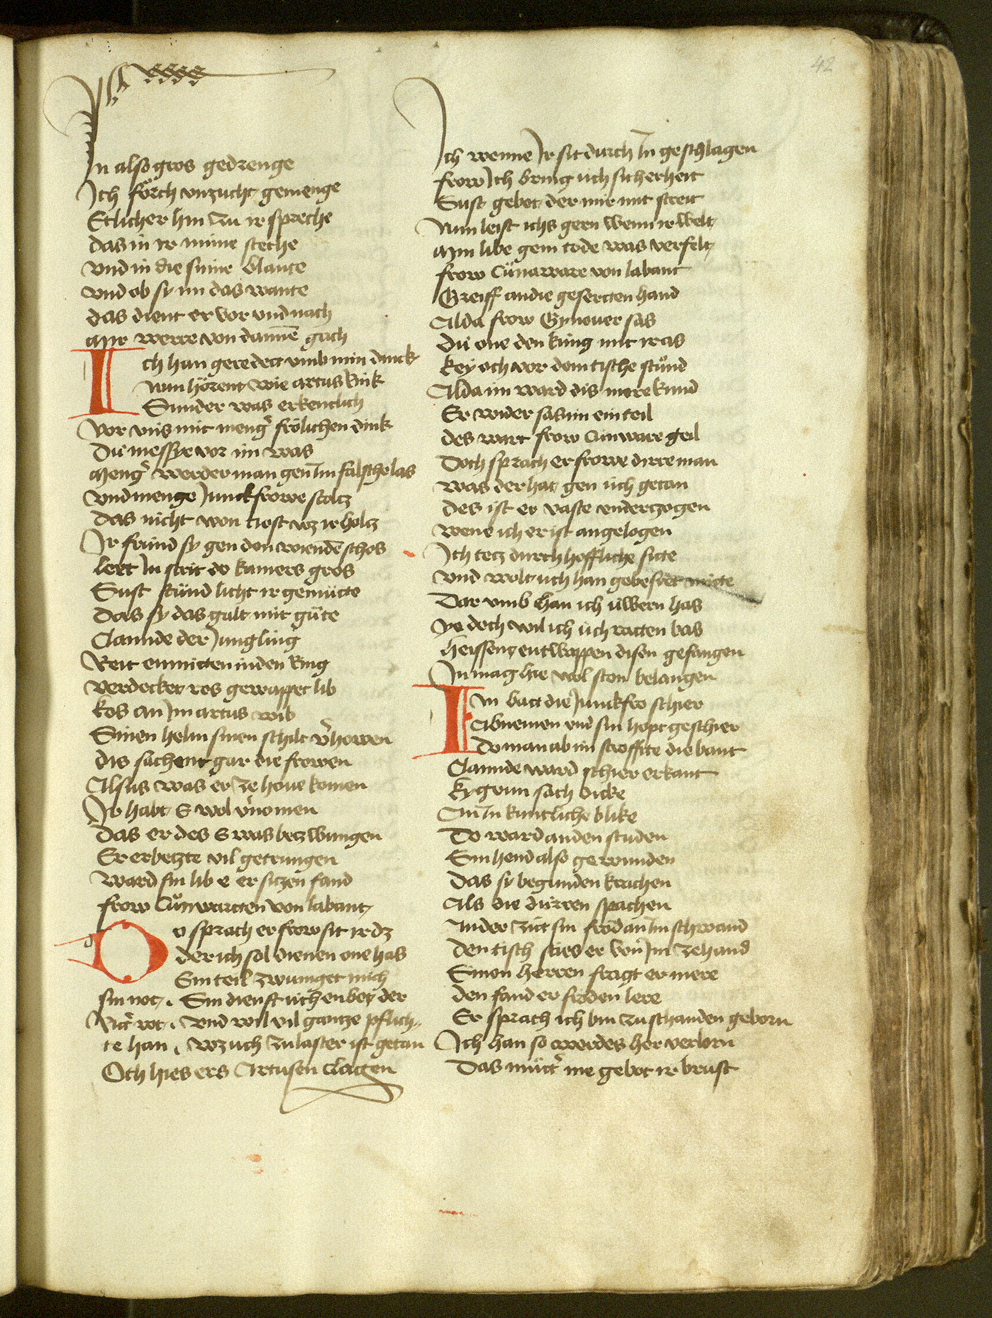 42
In also gros gedrenge
Ich förch unzucht gemenge
Etlicher hin zu ir spreche
das in ir minne steche
vnd in die sinne blante
vnd ob sy im das wante
das dient er vor vnd nach
Mir werre von dannē gach
Ich han geredett vmb min dinck
Nun hörent wie artus kink
Sunder was erkentlich
Vor vns mit mengr frölichen dink
Du messye vor im was
Mengr werder man gen Im falsch las
vnd menge Junckfrowe stoltz
Das nicht won tiost wz ir holtz
Ir fründ sy gen den viendē schos
lert In strit do kumers gros
Sust stünd licht ir gemütte
Das sy das galt mit güte
Clamide der Jungling
Reit enmitten in den king
verdecket ros gewappet lib
kos an Im artus wib
Sinen helm sinen schilt vrhowen
dis sachent gar die frowen
Alsus was er ze houe komen
Ir habt E wol vrnomen
Das er des E was betzwungen
Er erbetzte vil getrungen
Ward sin lib e er sitzen fand
frow Cünwartten von labant
Do sprach er frow sit ir dz
der ich sol dienen one has
Ein teil zwinget mich
sin not. Sin dienst üch enbeÿ der
Rittr rot. vnd wil vil gantze pflich
te han. wz üch zu laster ist getan
Och hies ers Artusen clagen
Ich wenne Ir sit durch In geschlagen
frow Ich bring üch sicherheit
Sust gebot der mit mir streit
Nun leist ichs gern wenn ir welt
Min libe gem tode was verselt
frow Cünaware von labant
Greiff an die gesertten hand
Alda frow Gynouer sas
Du one den küng mit ir as
key och vor dem tische stünd
Alda im ward dis mere kund
Er wider sas im ein teil
des wart frow Cunware geil
Doch sprach er frowe dirre man
was der hat gen üch getan
des ist er vaste vnderzogen
wene ich er ist angelogen
Ich tetz durch hoffliche sitte
vnd wolt üch han gebessert mitte
Dar vmb han ich üwern has
ye doch wil ich üch ratten bas
heissent entwappen disen gefangen
In mag hie wol ston belangen
Im batt die Junckfro schier
Abnemen vnd sin hopt geschier
Do man ab im stroffte die bant
Clamide ward schier erkant
kygrun sach dicke
An In kuntliche blike
Do ward an den studen
Sin hend also gewunden
Das sy begunden krachen
Als die dürren spachen
In der zitt sin fröd an Im schwand
Den tisch sties er von Im ze hand
Sinen herren fragt er mere
den fand er fröden lere
Er sprach ich bin zu schanden geborn
Ich han so werdes her verlorn
Das müttr nie gebot ir brust